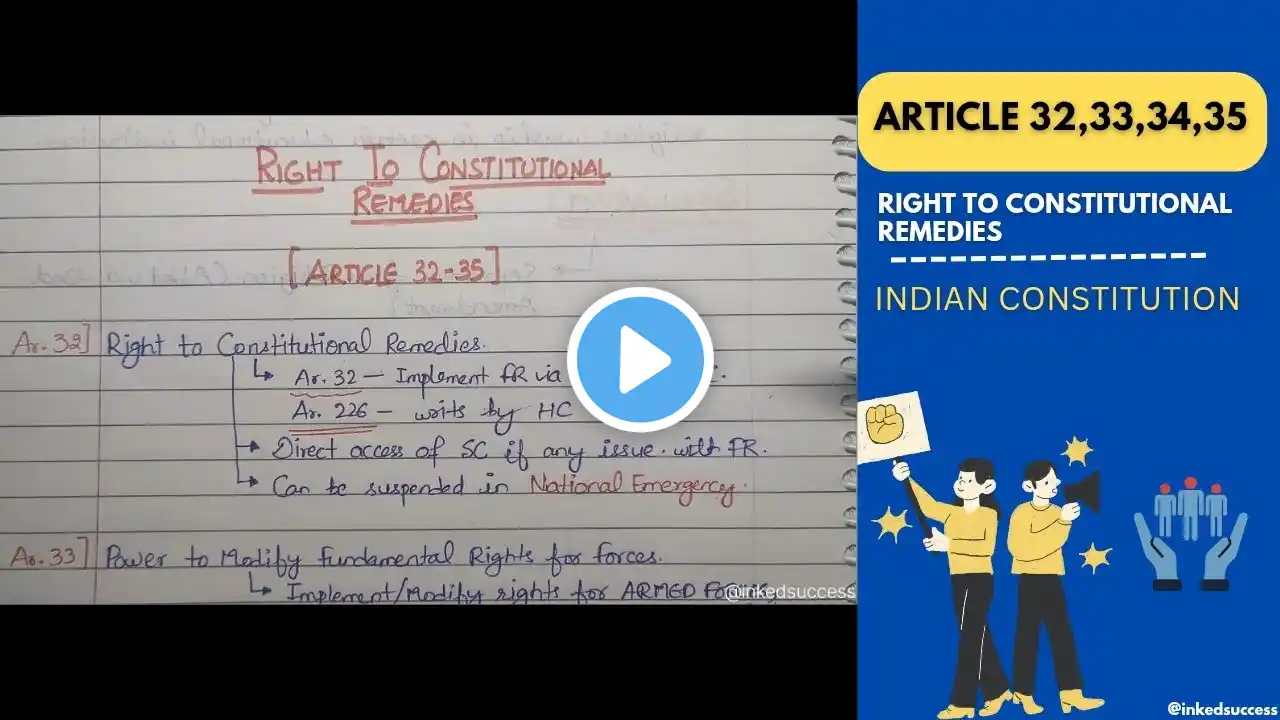 RIGHT TO CONSTITUTIONAL
REMEDIES
[ARTICLE 32-35]
Ar. 32] Right to Constitutional Remedies.
Ar. 32 – Implement FR via
Ar. 226 – writs by HC
Direct access of SC if any issue. with FR.
Can be suspended in National Emergency.
Ar. 33] Power to Modify Fundamental Rights for forces.
Implement/Modify rights for ARMED FORCES
@inkedsuccess
ARTICLE 32,33,34,35
RIGHT TO CONSTITUTIONAL
REMEDIES
INDIAN CONSTITUTION
@inkedsuccess